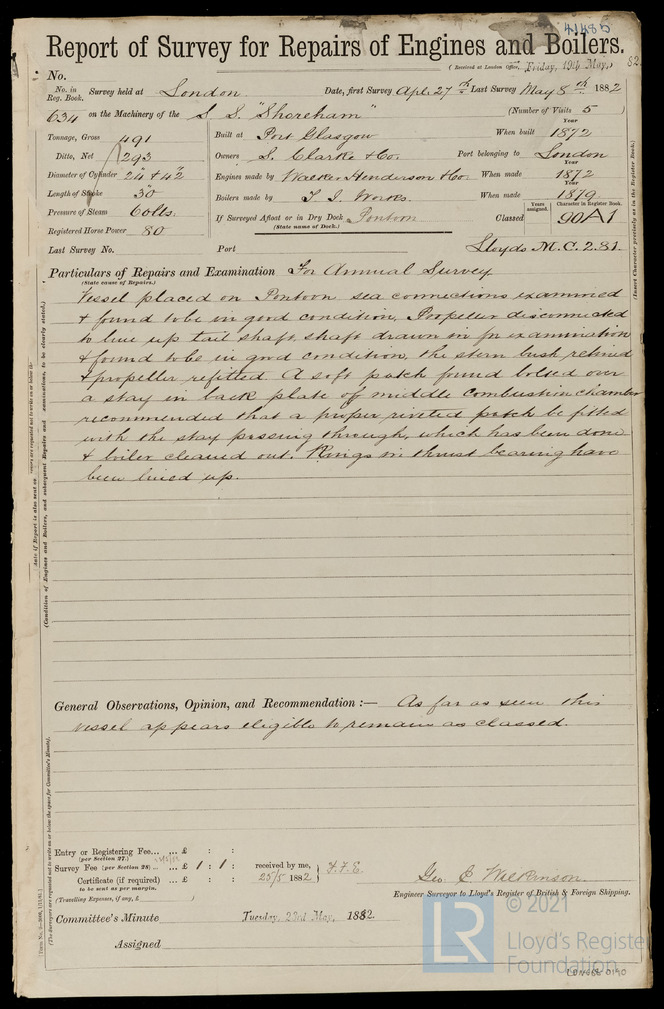 41485
Report of Survey for Repairs of Engines and Boilers.
(Received at London Office, Friday, 19th May, 82
No.
No. in Reg. Book. Survey held at London Date, first Survey Apl. 27th Last Survey May 8th 1882
634 on the Machinery of the S. S. "Shoreham" (Number of Visits 5)
Tonnage, Gross 491 Built at Port Glasgow When built Year 1872
Ditto, Net 293 Owners S. Clarke & Co. Port belonging to London
Diameter of Cylinder 24 & 42 Engines made by Walker Henderson & Co When made Year 1872
Length of Stroke 30 Boilers made by T. I. Works. When made Year 1879
Pressure of Steam 60lbs. If Surveyed Afloat or in Dry Dock Pontoon Classed Years assigned. Character in Register Book. 90A1
(State name of Dock.)
Registered Horse Power 80
Last Survey No. Port Lloyds M.C. 2.81.
Particulars of Repairs and Examination For Annual Survey
(State cause of Repairs.)
Vessel placed on Pontoon sea connections examined
& found to be in good condition, Propeller disconnected
to line up tail shaft, shaft drawn in for examination
& found to be in good condition, the stern bush relined
& propeller refitted. A soft patch found bolted over
a stay in back plate of middle combustion chamber
recommended that a proper riveted patch be fitted
with the stay passing through, which has been done
& boiler cleaned out. Rings in thrust bearing have
been lined up.
General Observations, Opinion, and Recommendation :— As far as seen this
vessel appears eligible to remain as classed.
Entry or Registering Fee... ... £ : :
(per Section 27.)
Survey Fee (per Section 28)... ... £ 1 : 1 : received by me,
Certificate (if required) ... £ : : 25/5 1882
to be sent as per margin.
(Travelling Expenses, if any, £ )
Geo. E. Wilkinson.
Engineer Surveyor to Lloyd's Register of British & Foreign Shipping.
Committee's Minute Tuesday, 23rd May, 1882.
Assigned
(Insert Character precisely as in the Register Book.)
(Condition of Engines and Boilers, and subsequent Repairs and examinations, to be clearly stated.)
(The Surveyors are requested not to write on or below the space for Committee's Minute).
LR
© 2021
Lloyd's Register
Foundation
LON686-0190